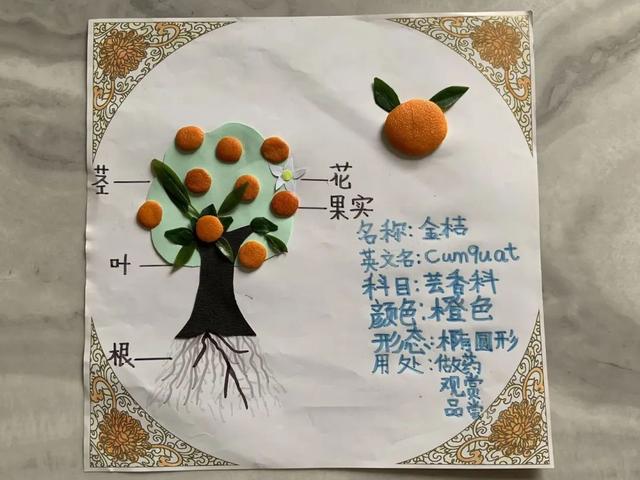 茎
花
果实
叶
根
名称:金桔
英文名:Cumquat
科目:芸香科
颜色:橙色
形态:椭圆形
用处:做药
观赏
品尝